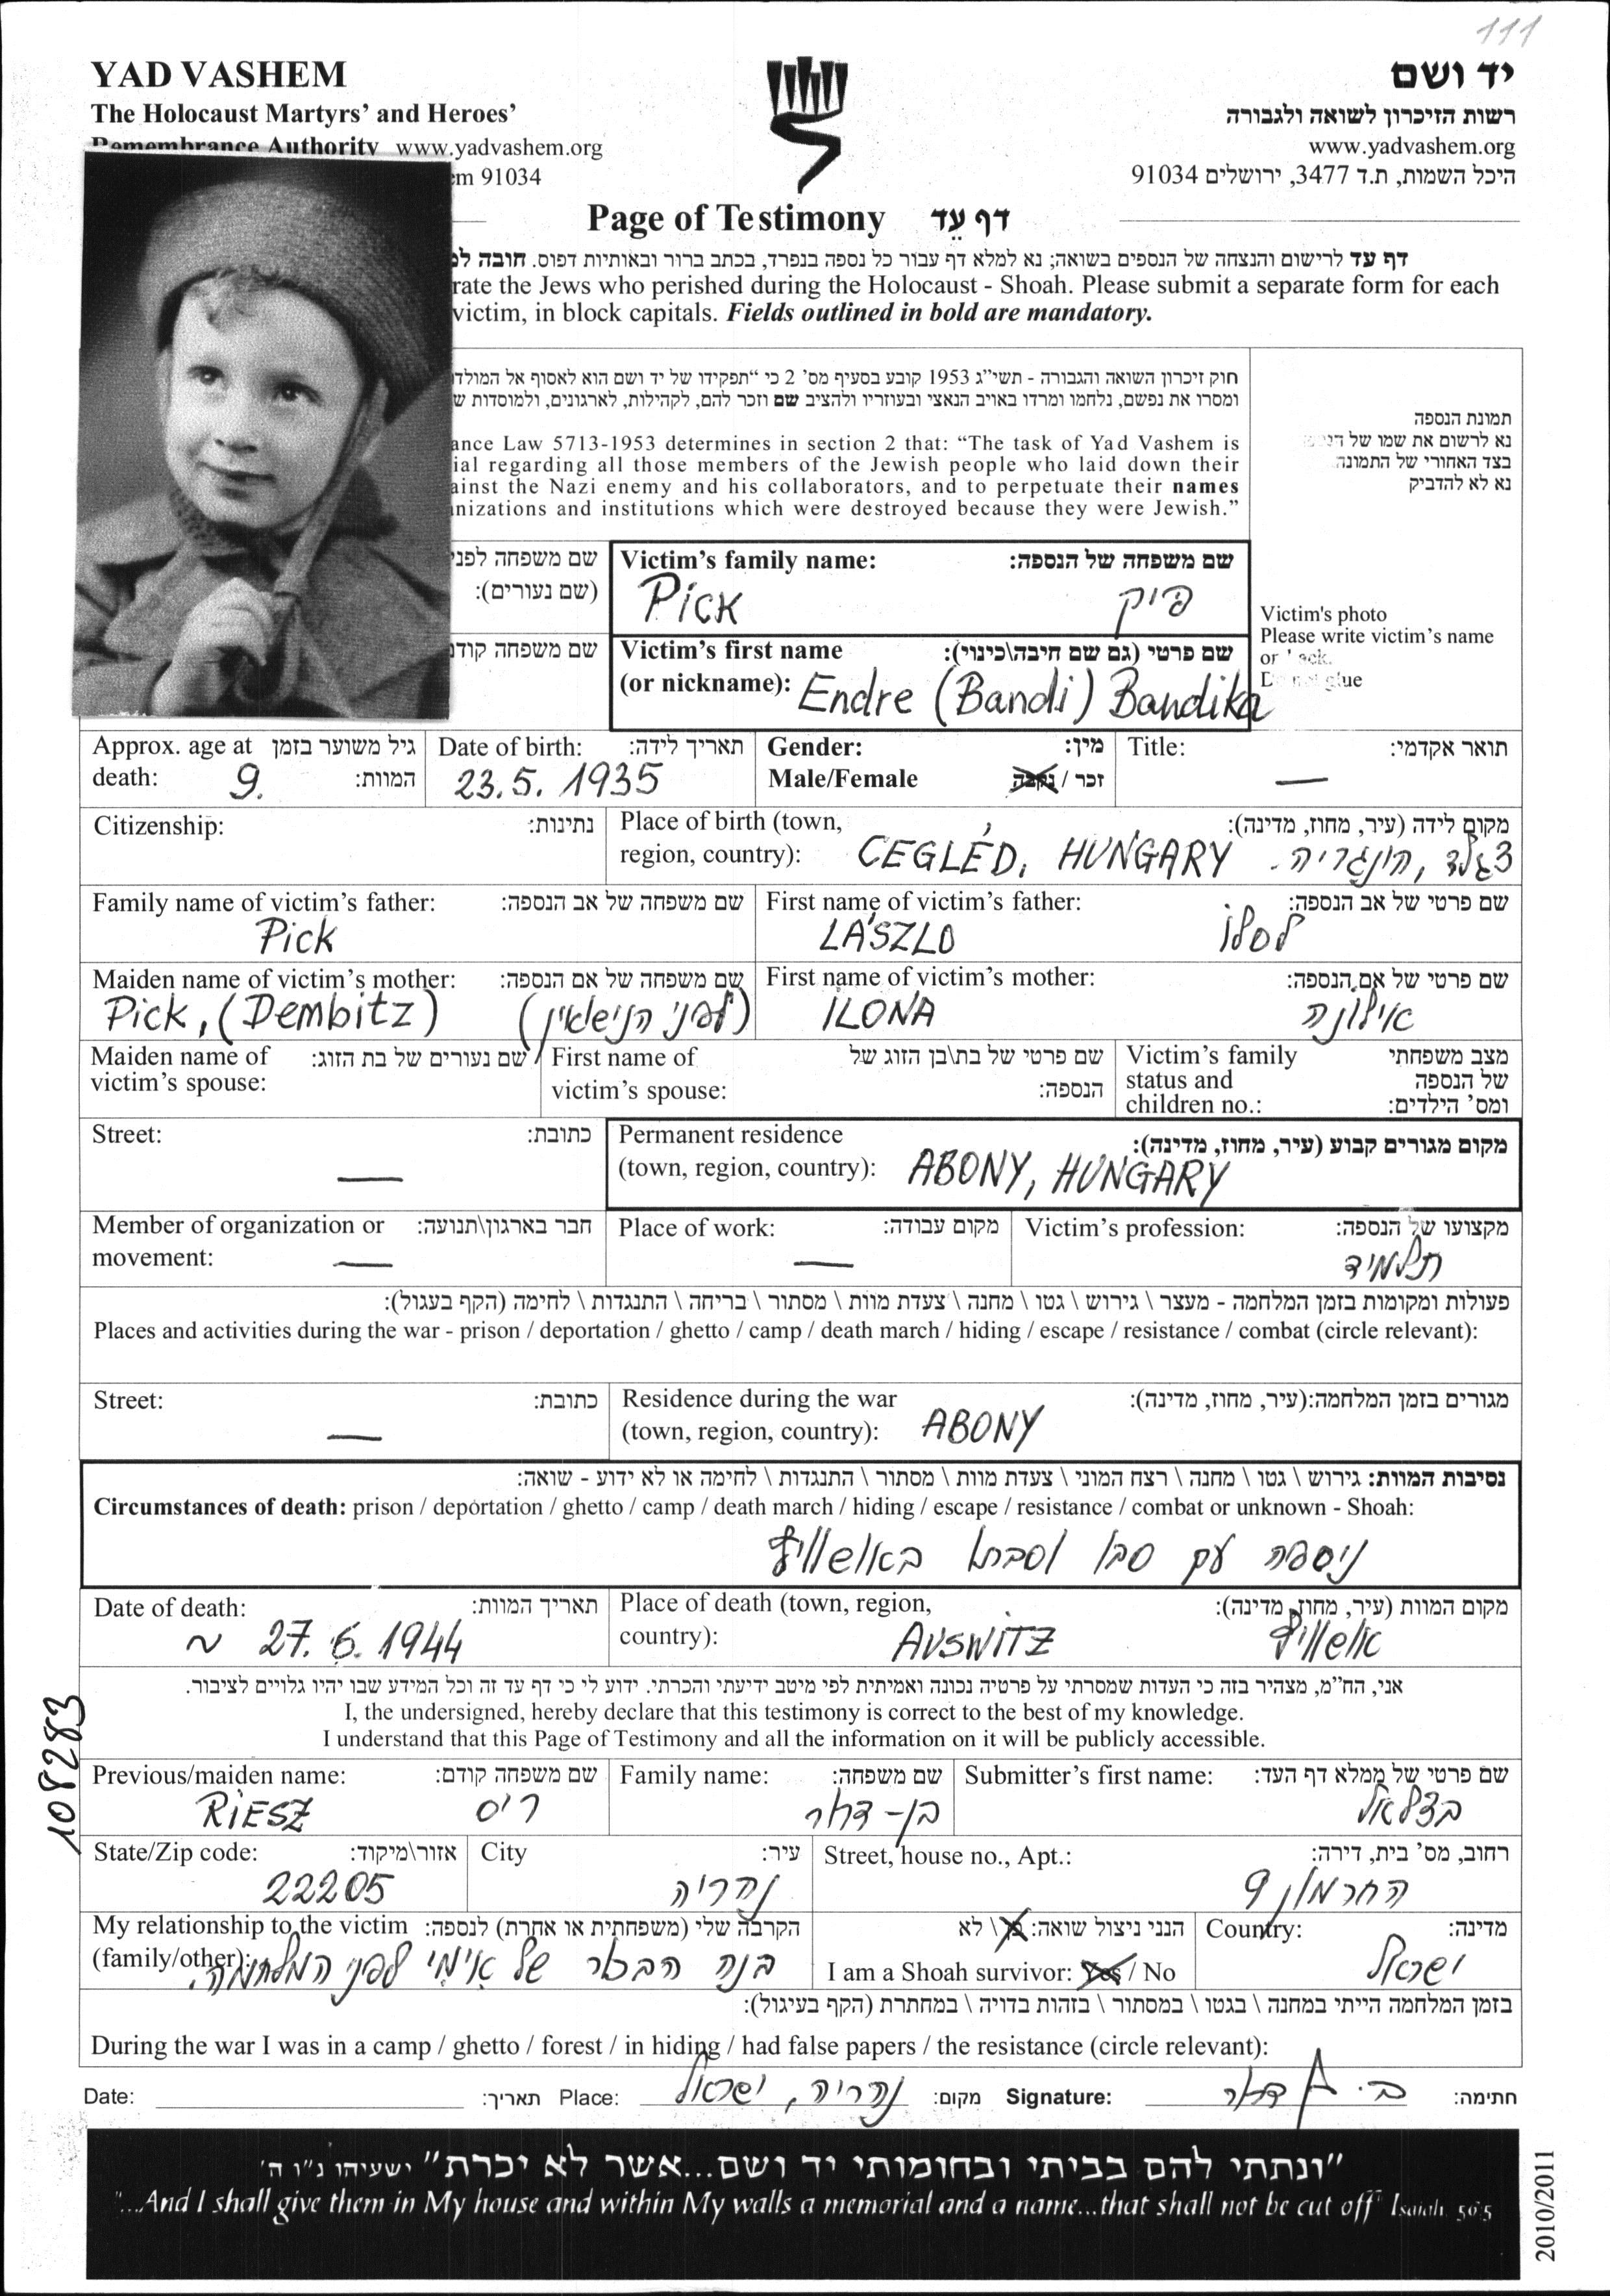 111
YAD VASHEM
The Holocaust Martyrs' and Heroes'
Remembrance Authority www.yadvashem.org
em 91034
יד ושם
רשות הזיכרון לשואה ולגבורה
www.yadvashem.org
היכל השמות, ת.ד 3477, ירושלים 91034
Page of Testimony דף עֵד
דף עד לרישום והנצחה של הנספים בשואה; נא למלא דף עבור כל נספה בנפרד, בכתב ברור ובאותיות דפוס. חובה למ
rate the Jews who perished during the Holocaust - Shoah. Please submit a separate form for each
victim, in block capitals. Fields outlined in bold are mandatory.
חוק זיכרון השואה והגבורה - תשי"ג 1953 קובע בסעיף מס' 2 כי "תפקידו של יד ושם הוא לאסוף אל המולד
ומסרו את נפשם, נלחמו ומרדו באויב הנאצי ובעוזריו ולהציב שם וזכר להם, לקהילות, לארגונים, ולמוסדות ש
ance Law 5713-1953 determines in section 2 that: "The task of Yad Vashem is
ial regarding all those members of the Jewish people who laid down their
ainst the Nazi enemy and his collaborators, and to perpetuate their names
nizations and institutions which were destroyed because they were Jewish."
תמונת הנספה
נא לרשום את שמו של
בצד האחורי של התמונה
נא לא להדביק
Victim's photo
Please write victim's name
שם משפחה לפני
(שם נעורים):
Victim's family name: שם משפחה של הנספה:
Pick פיק
שם משפחה קודם
Victim's first name שם פרטי (גם שם חיבה\כינוי):
(or nickname): Endre (Bandi) Bandika
Approx. age at גיל משוער בזמן
death: 9. המוות:
Date of birth: תאריך לידה:
23.5. 1935
Gender: מין:
Male/Female זכר / נקבה
Title: תואר אקדמי:
—
Citizenship: נתינות:
Place of birth (town, מקום לידה (עיר, מחוז, מדינה):
region, country): CEGLÉD, HUNGARY צגלד, הונגריה.
Family name of victim's father: שם משפחה של אב הנספה:
Pick
First name of victim's father: שם פרטי של אב הנספה:
LÁSZLO לסלו
Maiden name of victim's mother: שם משפחה של אם הנספה:
Pick, (Dembitz) (לפני הנישואין)
First name of victim's mother: שם פרטי של אם הנספה:
ILONA אילונה
Maiden name of שם נעורים של בת הזוג:
victim's spouse:
First name of שם פרטי של בת\בן הזוג של
victim's spouse: הנספה:
Victim's family מצב משפחתי
status and של הנספה
children no.: ומס' הילדים:
Street: כתובת:
—
Permanent residence מקום מגורים קבוע (עיר, מחוז, מדינה):
(town, region, country): ABONY, HUNGARY
Member of organization or חבר בארגון\תנועה:
movement: —
Place of work: מקום עבודה:
—
Victim's profession: מקצועו של הנספה:
תלמיד
פעולות ומקומות בזמן המלחמה - מעצר \ גירוש \ גטו \ מחנה \ צעדת מוות \ מסתור \ בריחה \ התנגדות \ לחימה (הקף בעגול):
Places and activities during the war - prison / deportation / ghetto / camp / death march / hiding / escape / resistance / combat (circle relevant):
Street: כתובת:
—
Residence during the war מגורים בזמן המלחמה:(עיר, מחוז, מדינה):
(town, region, country): ABONY
נסיבות המוות: גירוש \ גטו \ מחנה \ רצח המוני \ צעדת מוות \ מסתור \ התנגדות \ לחימה או לא ידוע - שואה:
Circumstances of death: prison / deportation / ghetto / camp / death march / hiding / escape / resistance / combat or unknown - Shoah:
ניספה עם סבו וסבתו באושוויץ
Date of death: תאריך המוות:
~ 27. 6. 1944
Place of death (town, region, מקום המוות (עיר, מחוז, מדינה):
country): AUSWITZ אושוויץ
אני, הח"מ, מצהיר בזה כי העדות שמסרתי על פרטיה נכונה ואמיתית לפי מיטב ידיעתי והכרתי. ידוע לי כי דף עד זה וכל המידע שבו יהיו גלויים לציבור.
I, the undersigned, hereby declare that this testimony is correct to the best of my knowledge.
I understand that this Page of Testimony and all the information on it will be publicly accessible.
108283
Previous/maiden name: שם משפחה קודם:
RIESZ ריס
Family name: שם משפחה:
בן-דרור
Submitter's first name: שם פרטי של ממלא דף העד:
בצלאל
State/Zip code: אזור\מיקוד:
22205
City עיר:
נהריה
Street, house no., Apt.: רחוב, מס' בית, דירה:
החרמון 9
My relationship to the victim הקרבה שלי (משפחתית או אחרת) לנספה:
(family/other): בנה הבכור של אימי לפני המלחמה.
הנני ניצול שואה: כן \ לא
I am a Shoah survivor: Yes / No
Country: מדינה:
ישראל
בזמן המלחמה הייתי במחנה \ בגטו \ במסתור \ בזהות בדויה \ במחתרת (הקף בעיגול):
During the war I was in a camp / ghetto / forest / in hiding / had false papers / the resistance (circle relevant):
Date: תאריך: Place: נהריה, ישראל מקום: Signature: חתימה:
"ונתתי להם בביתי ובחומותי יד ושם...אשר לא יכרת" ישעיהו נ"ו ה'
"...And I shall give them in My house and within My walls a memorial and a name...that shall not be cut off" Isaiah 56:5
2010/2011